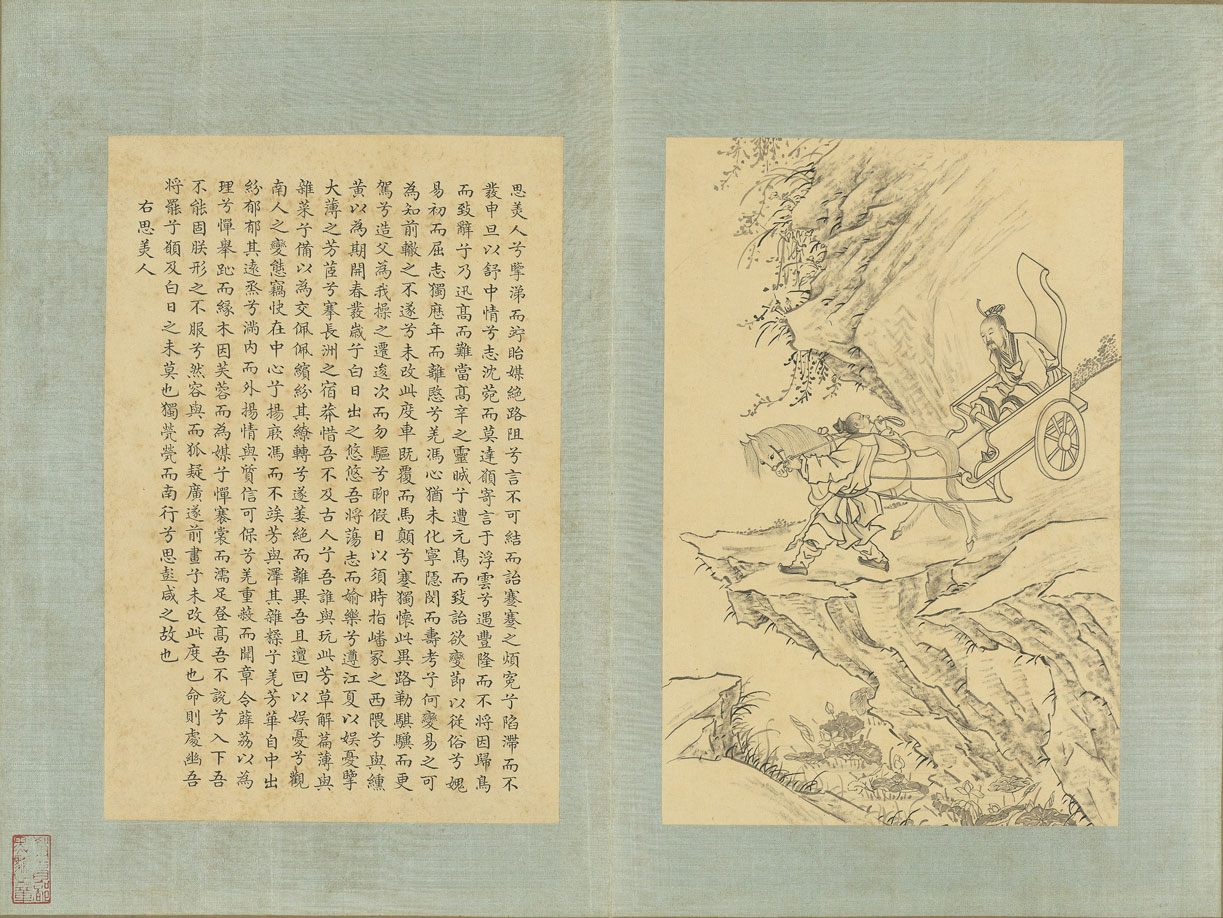 思美人兮擥涕而竚眙媒絕路阻兮言不可結而詒蹇蹇之煩冤兮陷滯而不
發申旦以舒中情兮志沈菀而莫達願寄言于浮雲兮遇豐隆而不將因歸鳥
而致辭兮乃迅高而難當高辛之靈晠兮遭元鳥而致詒欲變節以從俗兮媿
易初而屈志獨歷年而離愍兮羌馮心猶未化寧隱閔而壽考兮何變易之可
為知前轍之不遂兮未改此度車既覆而馬顛兮蹇獨懷此異路勒騏驥而更
駕兮造父為我操之遷逡次而勿驅兮聊假日以須時指嶓冢之西隈兮與纁
黃以為期開春發歲兮白日出之悠悠吾將蕩志而媮樂兮遵江夏以娛憂擥
大薄之芳茝兮搴長洲之宿莽惜吾不及古人兮吾誰與玩此芳草解萹薄與
雜菜兮備以為交佩佩繽紛其繚轉兮遂萎絕而離異吾且儃回以娛憂兮觀
南人之變態竊快在中心兮揚厥馮而不竢芳與澤其雜糅兮羌芳華自中出
紛郁郁其遠烝兮滿內而外揚情與質信可保兮羌重蔽而聞章令薜荔以為
理兮憚舉趾而緣木因芙蓉而為媒兮憚褰裳而濡足登高吾不說兮入下吾
不能固朕形之不服兮然容與而狐疑廣遂前畫兮未改此度也命則處幽吾
將罷兮願及白日之未莫也獨煢煢而南行兮思彭咸之故也
右思美人